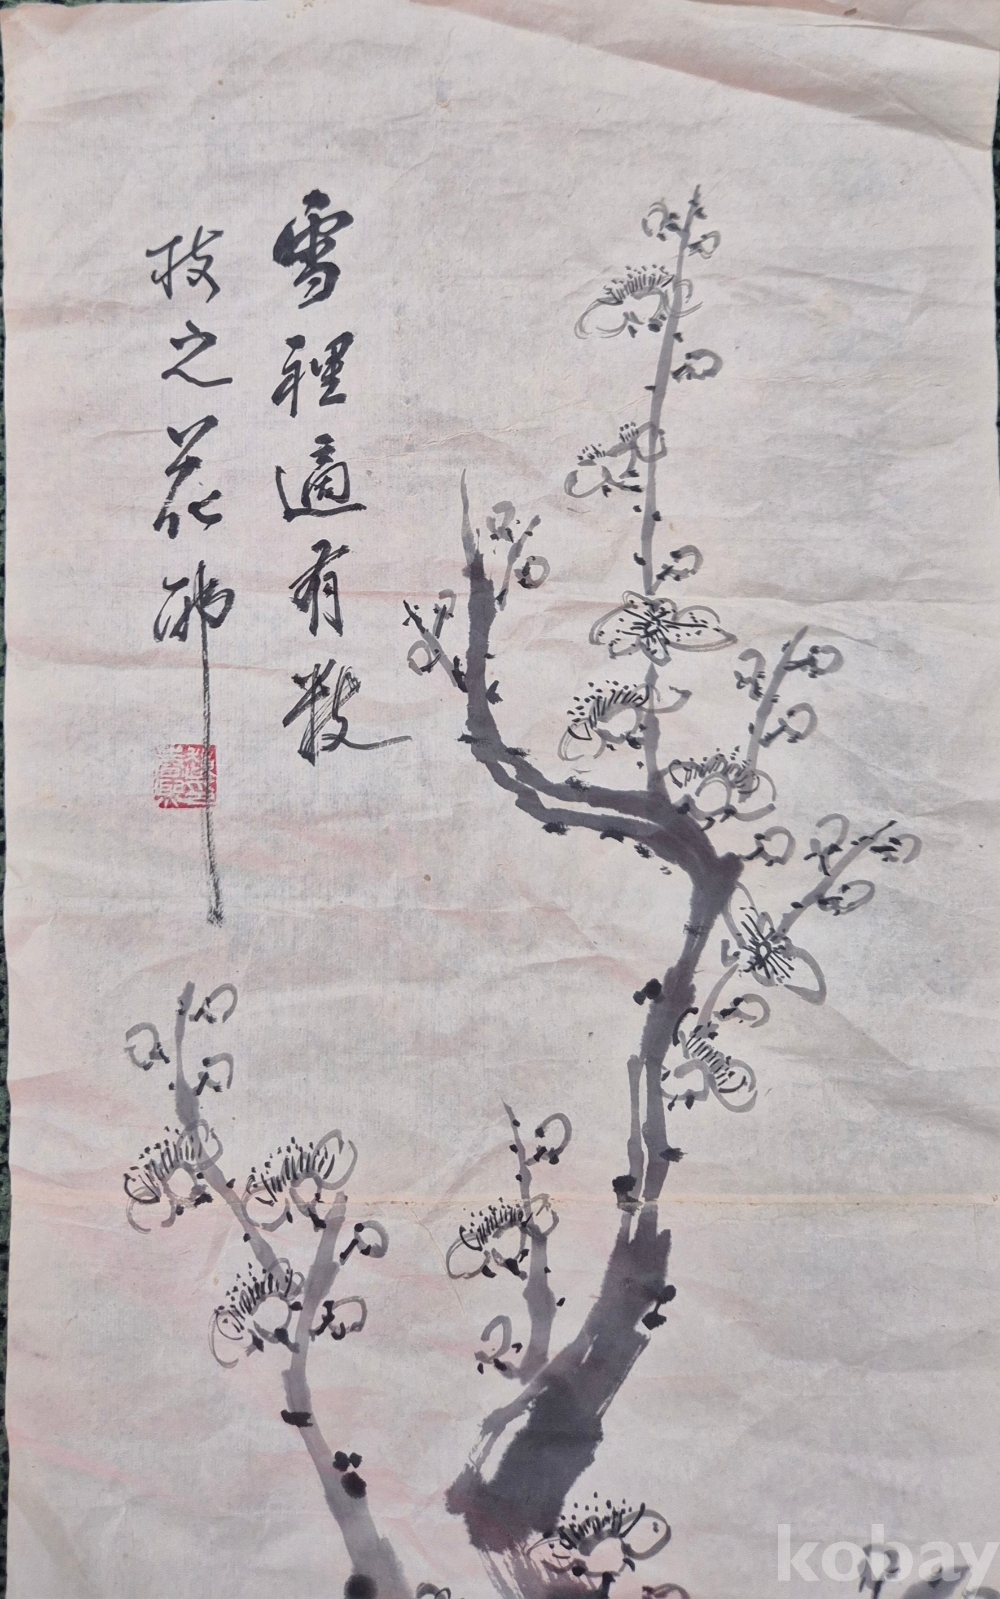 雪裡適有數
枝之花
kobay